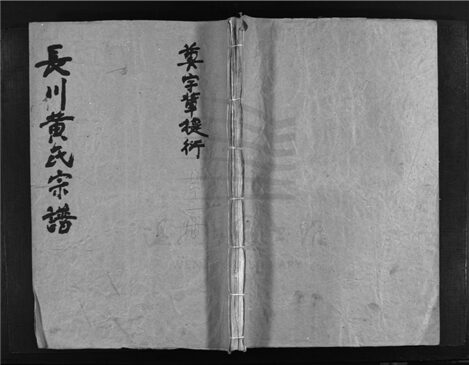 奠字輩提衍
長川黄氏宗譜